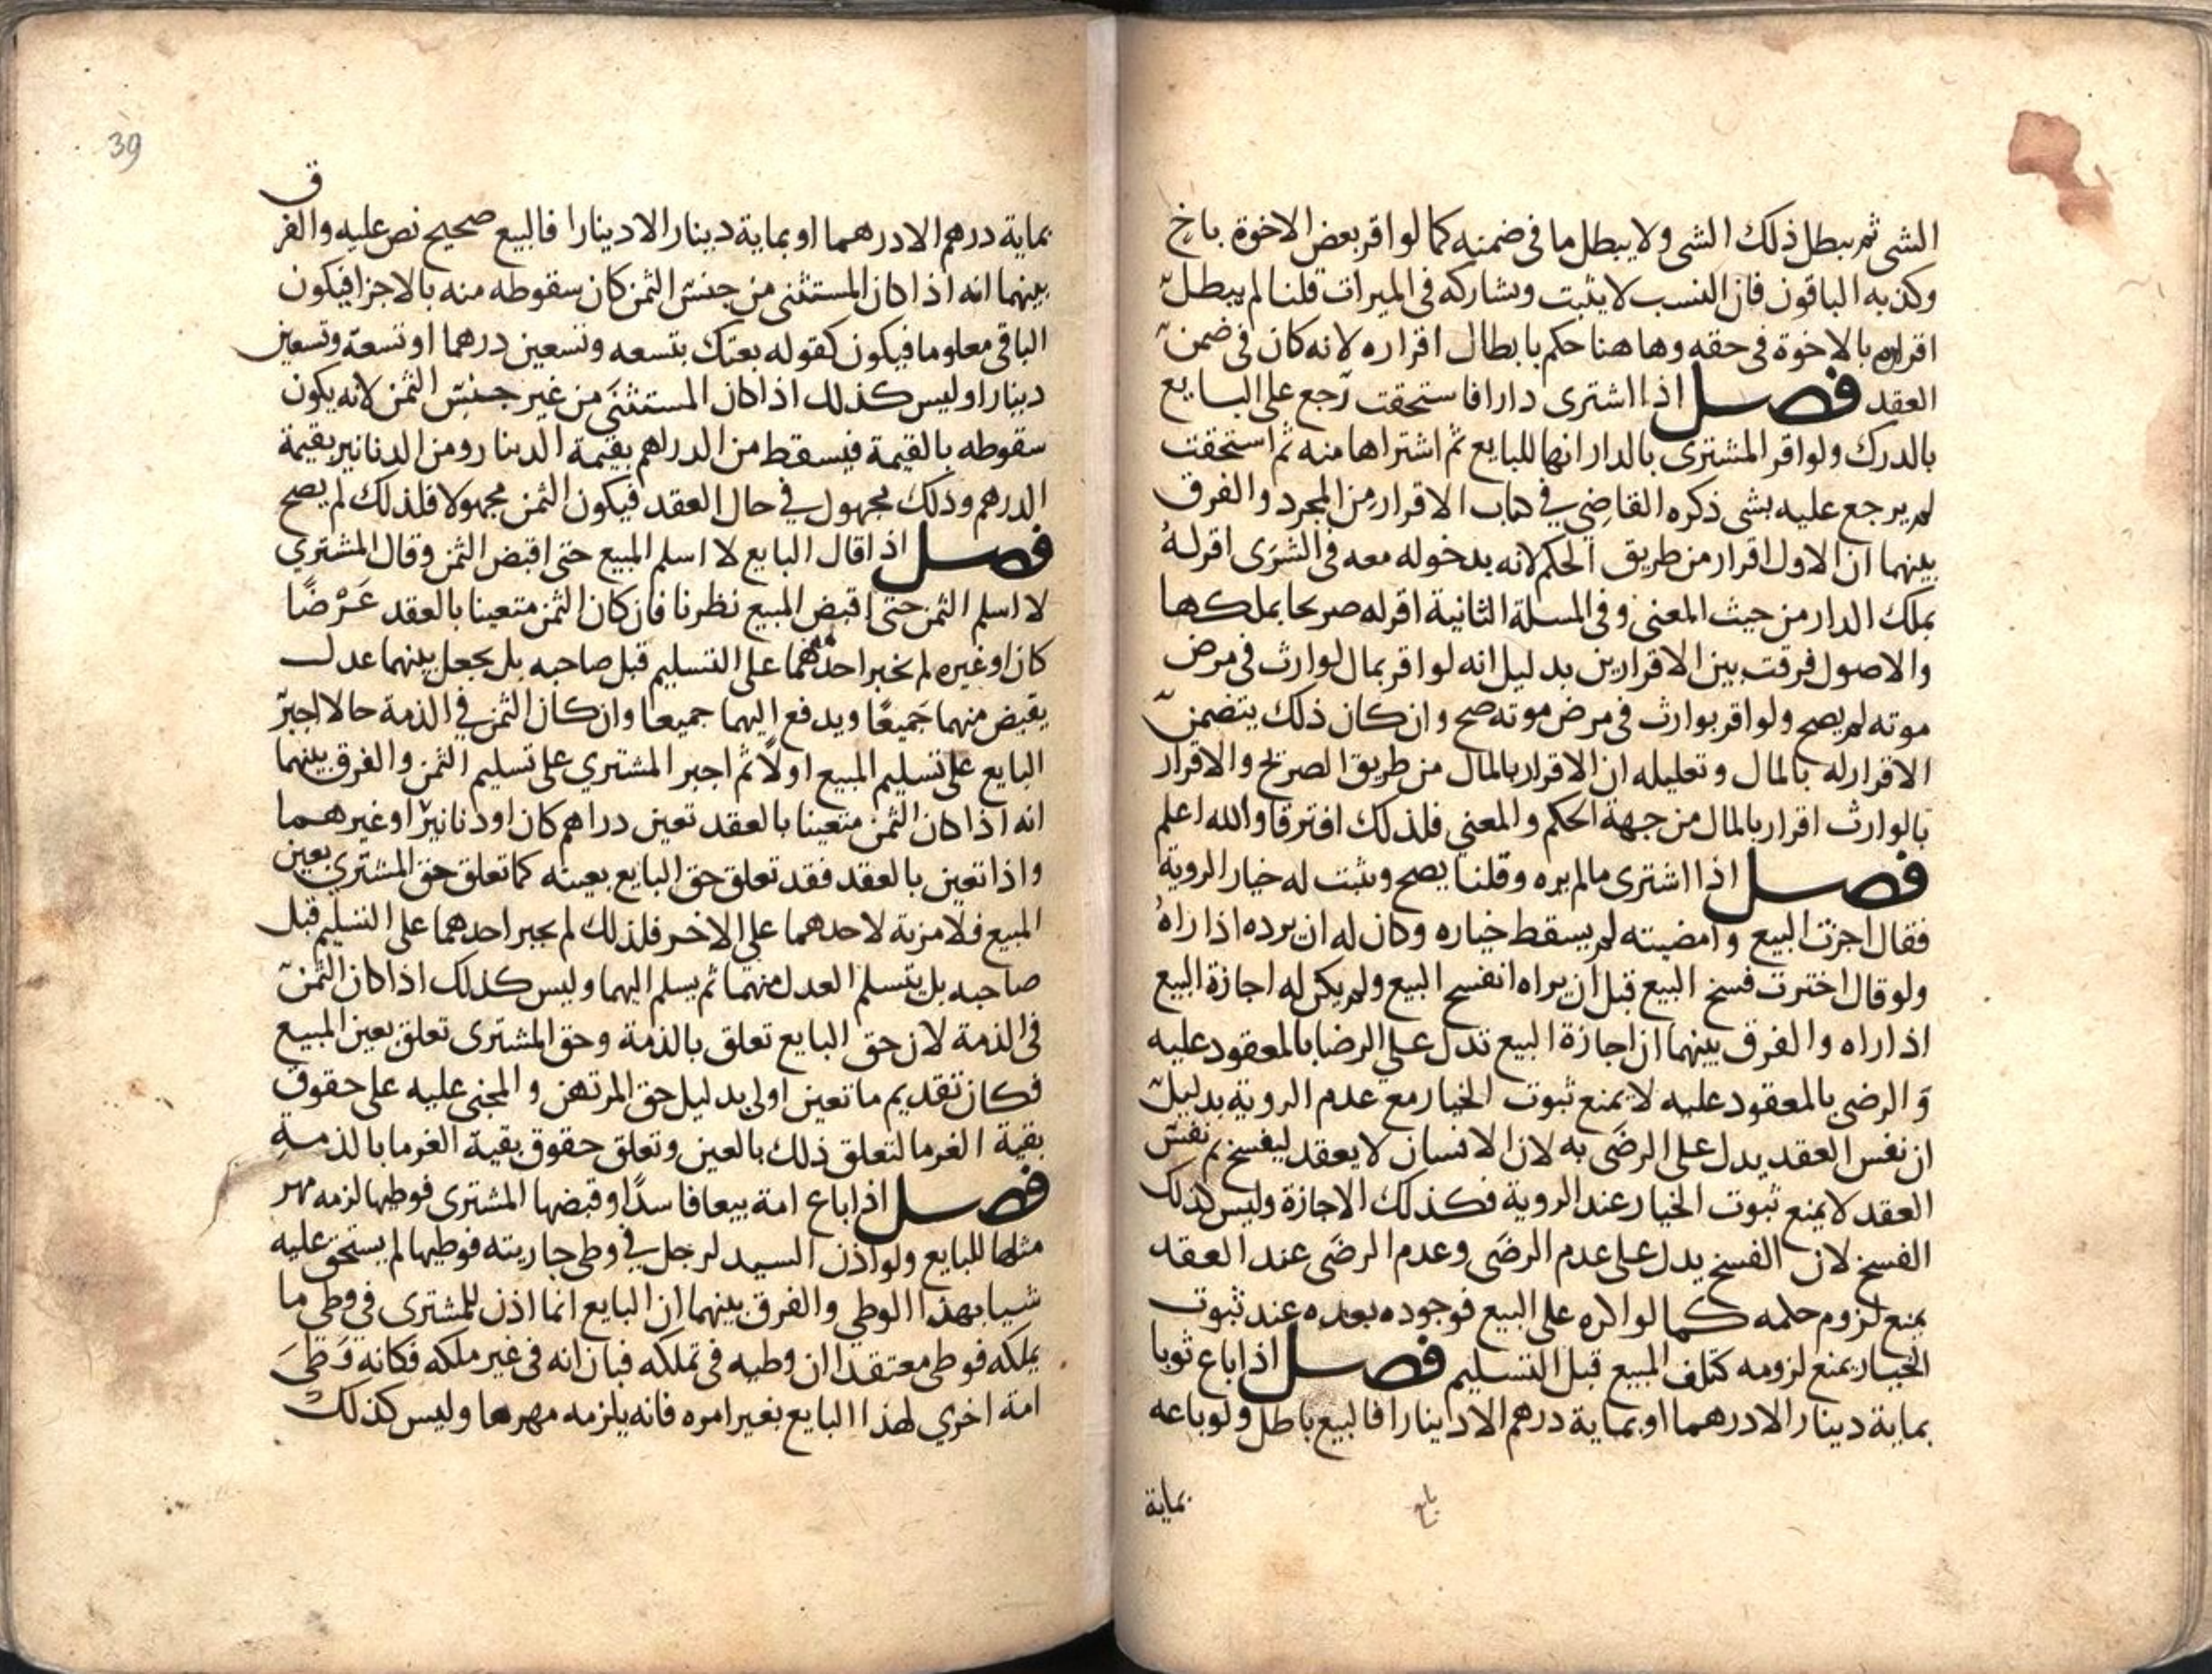 الشي ثم يبطل ذلك الشي ولا يبطل ما في ضمنه كما لو اقر بعض الاخوة باخ
وكذبه الباقون فان النسب لا يثبت ويشاركه في الميراث قلنا لم يبطل
اقراره بالاخوة في حقه وها هنا حكم بابطال اقراره لانه كان في ضمن
العقد فصل اذا اشترى دارا فاستحقت رجع على البايع
بالدرك ولو اقر المشترى بالدار انها للبايع ثم اشتراها منه ثم استحقت
لم يرجع عليه بشى ذكره القاضي في كتاب الاقرار من المجرد والفرق
بينهما ان الاول اقرار من طريق الحكم لانه بدخوله معه في الشرى اقر له
بملك الدار من حيث المعنى وفي المسلة الثانية اقر له صريحا بملكها
والاصول فرقت بين الاقرارين بدليل انه لو اقر بمال لوارث في مرض
موته لم يصح ولو اقر بوارث في مرض موته صح وان كان ذلك يتضمن
الاقرار له بالمال وتعليله ان الاقرار بالمال من طريق الصريح والاقرار
بالوارث اقرار بالمال من جهة الحكم والمعني فلذلك افترقا والله اعلم
فصل اذا اشترى ما لم يره وقلنا يصح ويثبت له خيار الروية
فقال اجزت البيع وامضيته لم يسقط خياره وكان له ان يرده اذا راه
ولو قال اخترت فسخ البيع قبل ان يراه انفسخ البيع ولم يكن له اجازة البيع
اذا راه والفرق بينهما ان اجازة البيع تدل على الرضا بالمعقود عليه
والرضى بالمعقود عليه لا يمنع ثبوت الخيار مع عدم الروية بدليل
ان نفس العقد يدل على الرضى به لان الانسان لا يعقد ليفسخ ثم نفس
العقد لا يمنع ثبوت الخيار عند الروية فكذلك الاجازة وليس كذلك
الفسخ لان الفسخ يدل على عدم الرضى وعدم الرضى عند العقد
يمنع لزوم حكمه كما لو اكره على البيع فوجوده بعده عند ثبوت
الخيار يمنع لزومه كتلف المبيع قبل التسليم فصل اذا باع ثوبا
بماية دينار الا درهما او بماية درهم الا دينارا فالبيع باطل ولو باعه
بماية
39
بماية درهم الا درهما او بماية دينار الا دينارا فالبيع صحيح نص عليه والفرق
بينهما انه اذا كان المستثنى من جنس الثمن كان سقوطه منه بالاجزا فيكون
الباقي معلوما فيكون كقوله بعتك بتسعه وتسعين درهما او تسعة وتسعين
دينارا وليس كذلك اذا كان المستثنى من غير جنس الثمن لانه يكون
سقوطه بالقيمة فيسقط من الدراهم بقيمة الدينار ومن الدنانير بقيمة
الدرهم وذلك مجهول في حال العقد فيكون الثمن مجهولا فلذلك لم يصح
فصل اذا قال البايع لا اسلم المبيع حتى اقبض الثمن وقال المشتري
لا اسلم الثمن حتى اقبض المبيع نظرنا فان كان الثمن متعينا بالعقد عرضا
كان او غيره لم يجبر احدهما على التسليم قبل صاحبه بل يجعل بينهما عدل
يقبض منهما جميعا ويدفع اليهما جميعا وان كان الثمن في الذمة حالا اجبر
البايع على تسليم المبيع اولا ثم اجبر المشتري على تسليم الثمن والفرق بينهما
انه اذا كان الثمن متعينا بالعقد تعين دراهم كان او دنانير او غيرهما
واذا تعين بالعقد فقد تعلق حق البايع بعينه كما تعلق حق المشتري بعين
المبيع فلا مزية لاحدهما على الاخر فلذلك لم يجبر احدهما على التسليم قبل
صاحبه بل يتسلم العدل منهما ثم يسلم اليهما وليس كذلك اذا كان الثمن
في الذمة لان حق البايع تعلق بالذمة وحق المشترى تعلق بعين المبيع
فكان تقديم ما تعين اولى بدليل حق المرتهن والمجنى عليه على حقوق
بقية الغرما لتعلق ذلك بالعين وتعلق حقوق بقية الغرما بالذمة
فصل اذا باع امة بيعا فاسدا وقبضها المشترى فوطيها لزمه مهر
مثلها للبايع ولو اذن السيد لرجل في وطى جاريته فوطيها لم يستحق عليه
شيا بهذا الوطي والفرق بينهما ان البايع انما اذن للمشترى في وطي ما
يملكه فوطى معتقدا ان وطيه في تملكه فبان انه في غير ملكه فكانه وطى
امة اخري لهذا البايع بغير امره فانه يلزمه مهرها وليس كذلك